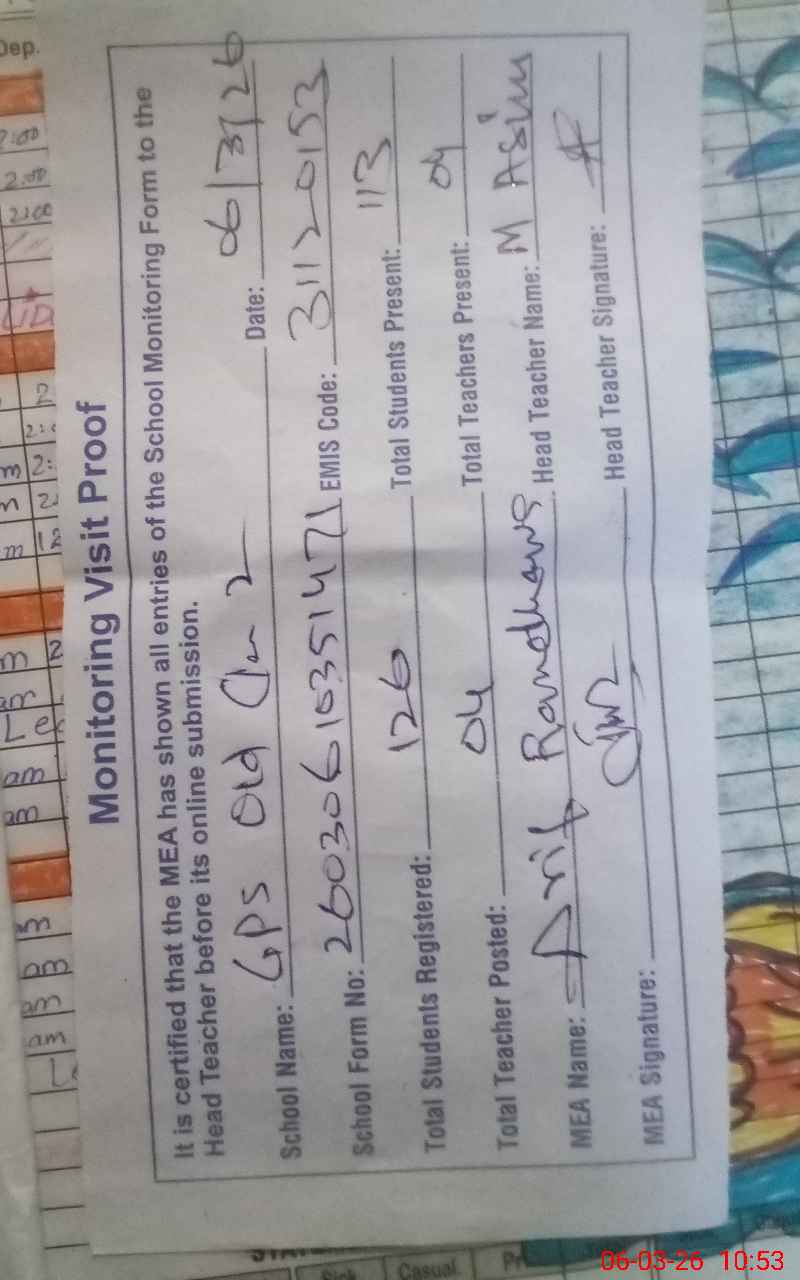 Monitoring Visit Proof
It is certified that the MEA has shown all entries of the School Monitoring Form to the
Head Teacher before its online submission.
School Name: GPS Old Date: 06/3/26
School Form No: 26030610351471 EMIS Code: 31120153
Total Students Registered: 126 Total Students Present: 113
Total Teacher Posted: 04 Total Teachers Present: 04
MEA Name: Arif Randhawa Head Teacher Name: M Asim
MEA Signature: Head Teacher Signature:
Dep.
Casual
06-03-26 10:53